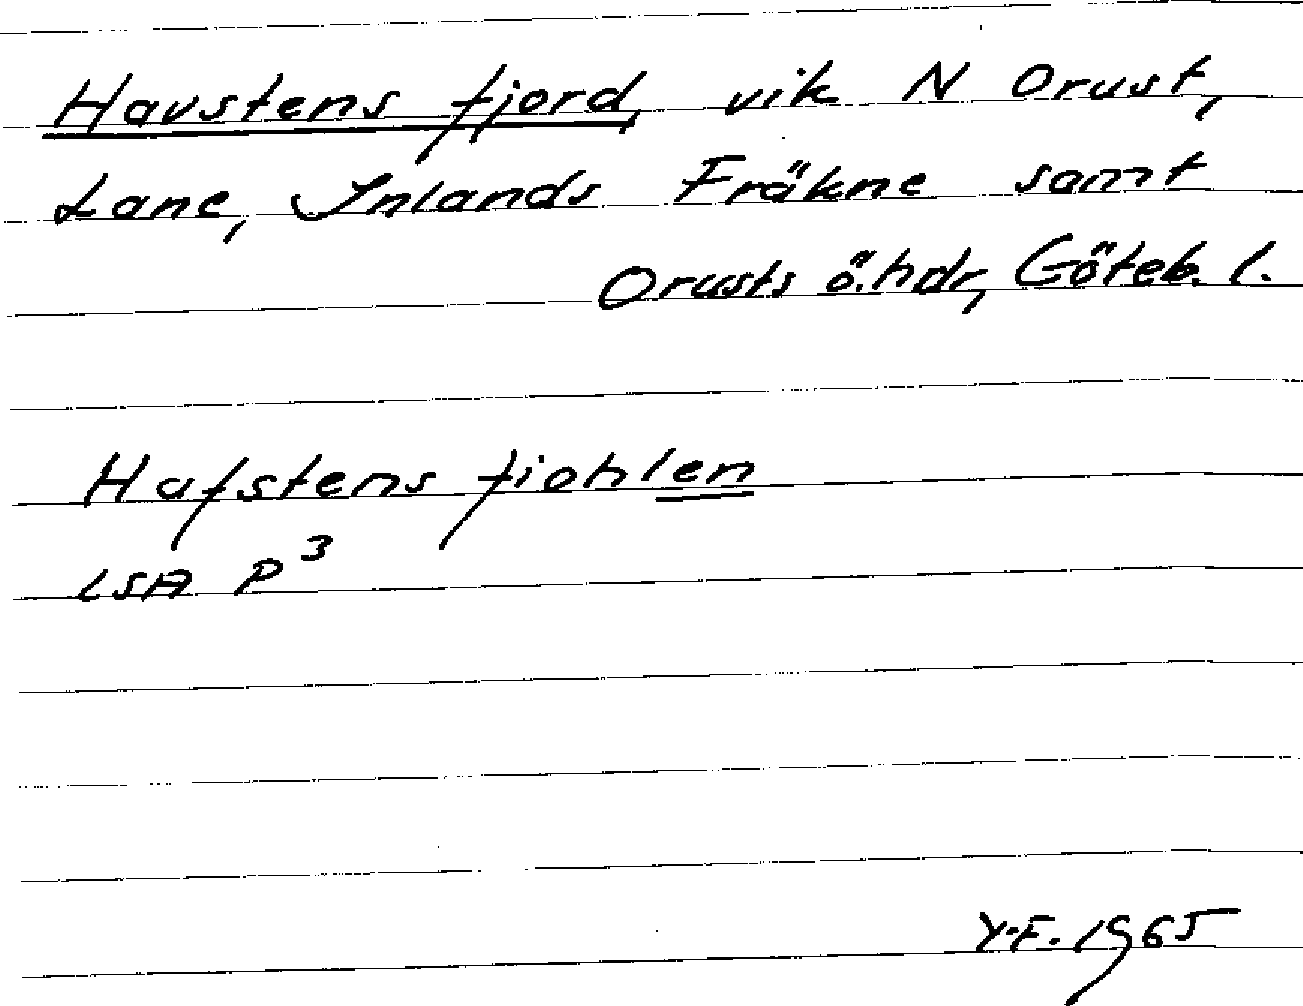 Havstens fjord, vik N Orust,
Lane, Inlands Fräkne samt
Orusts ö. hdr, Göteb. l.
Hafstens fiohlen
LSA P³
Y.F. 1965